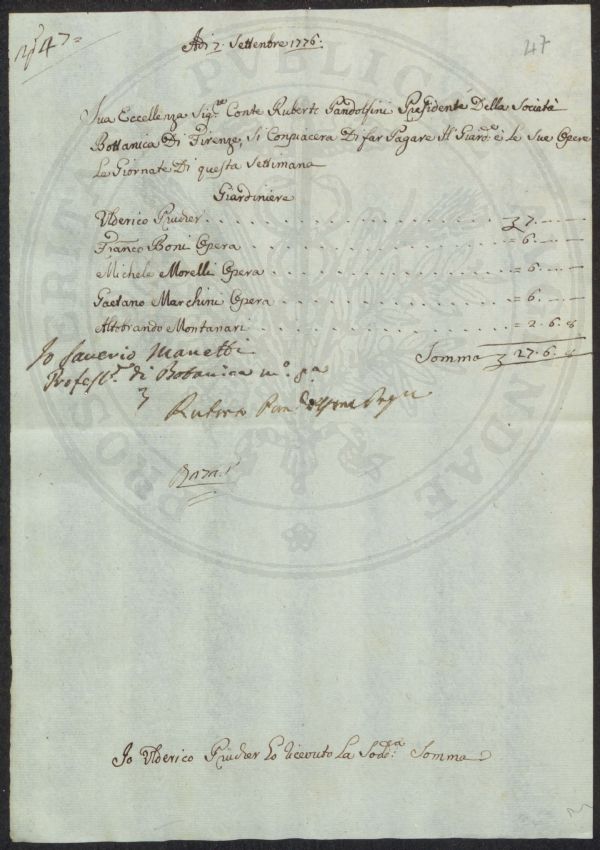 N.º 47=
47
Adi 7 Settembre 1776:
Sua Eccellenza Sig.re Conte Ruberto Pandolfini Presidente Della Società
Bottanica Di Firenze, Si Conpiacera Di far Pagare Al Giard.e e le Sue Opere
Le Giornate Di questa Settimana
Giardiniere
Ulderico Prucher . . . . . . . . 7. — —
Franco Boni Opera . . . . . . . . = 6. — —
Michele Morelli Opera . . . . . . . . = 6. — —
Gaetano Marchini Opera . . . . . . . . = 6. — —
Altobrando Montanari . . . . . . . . = 2. 6. 8
Somma 27. 6. 8
Io Saverio Manetti
Profess.r di Botanica m.º p.a
Ruberto Pandolfini
Io Ulderico Prucher Ho ricevuto La Sod.a Somma
PROSPERITATI PUBLICAE AUGENDAE